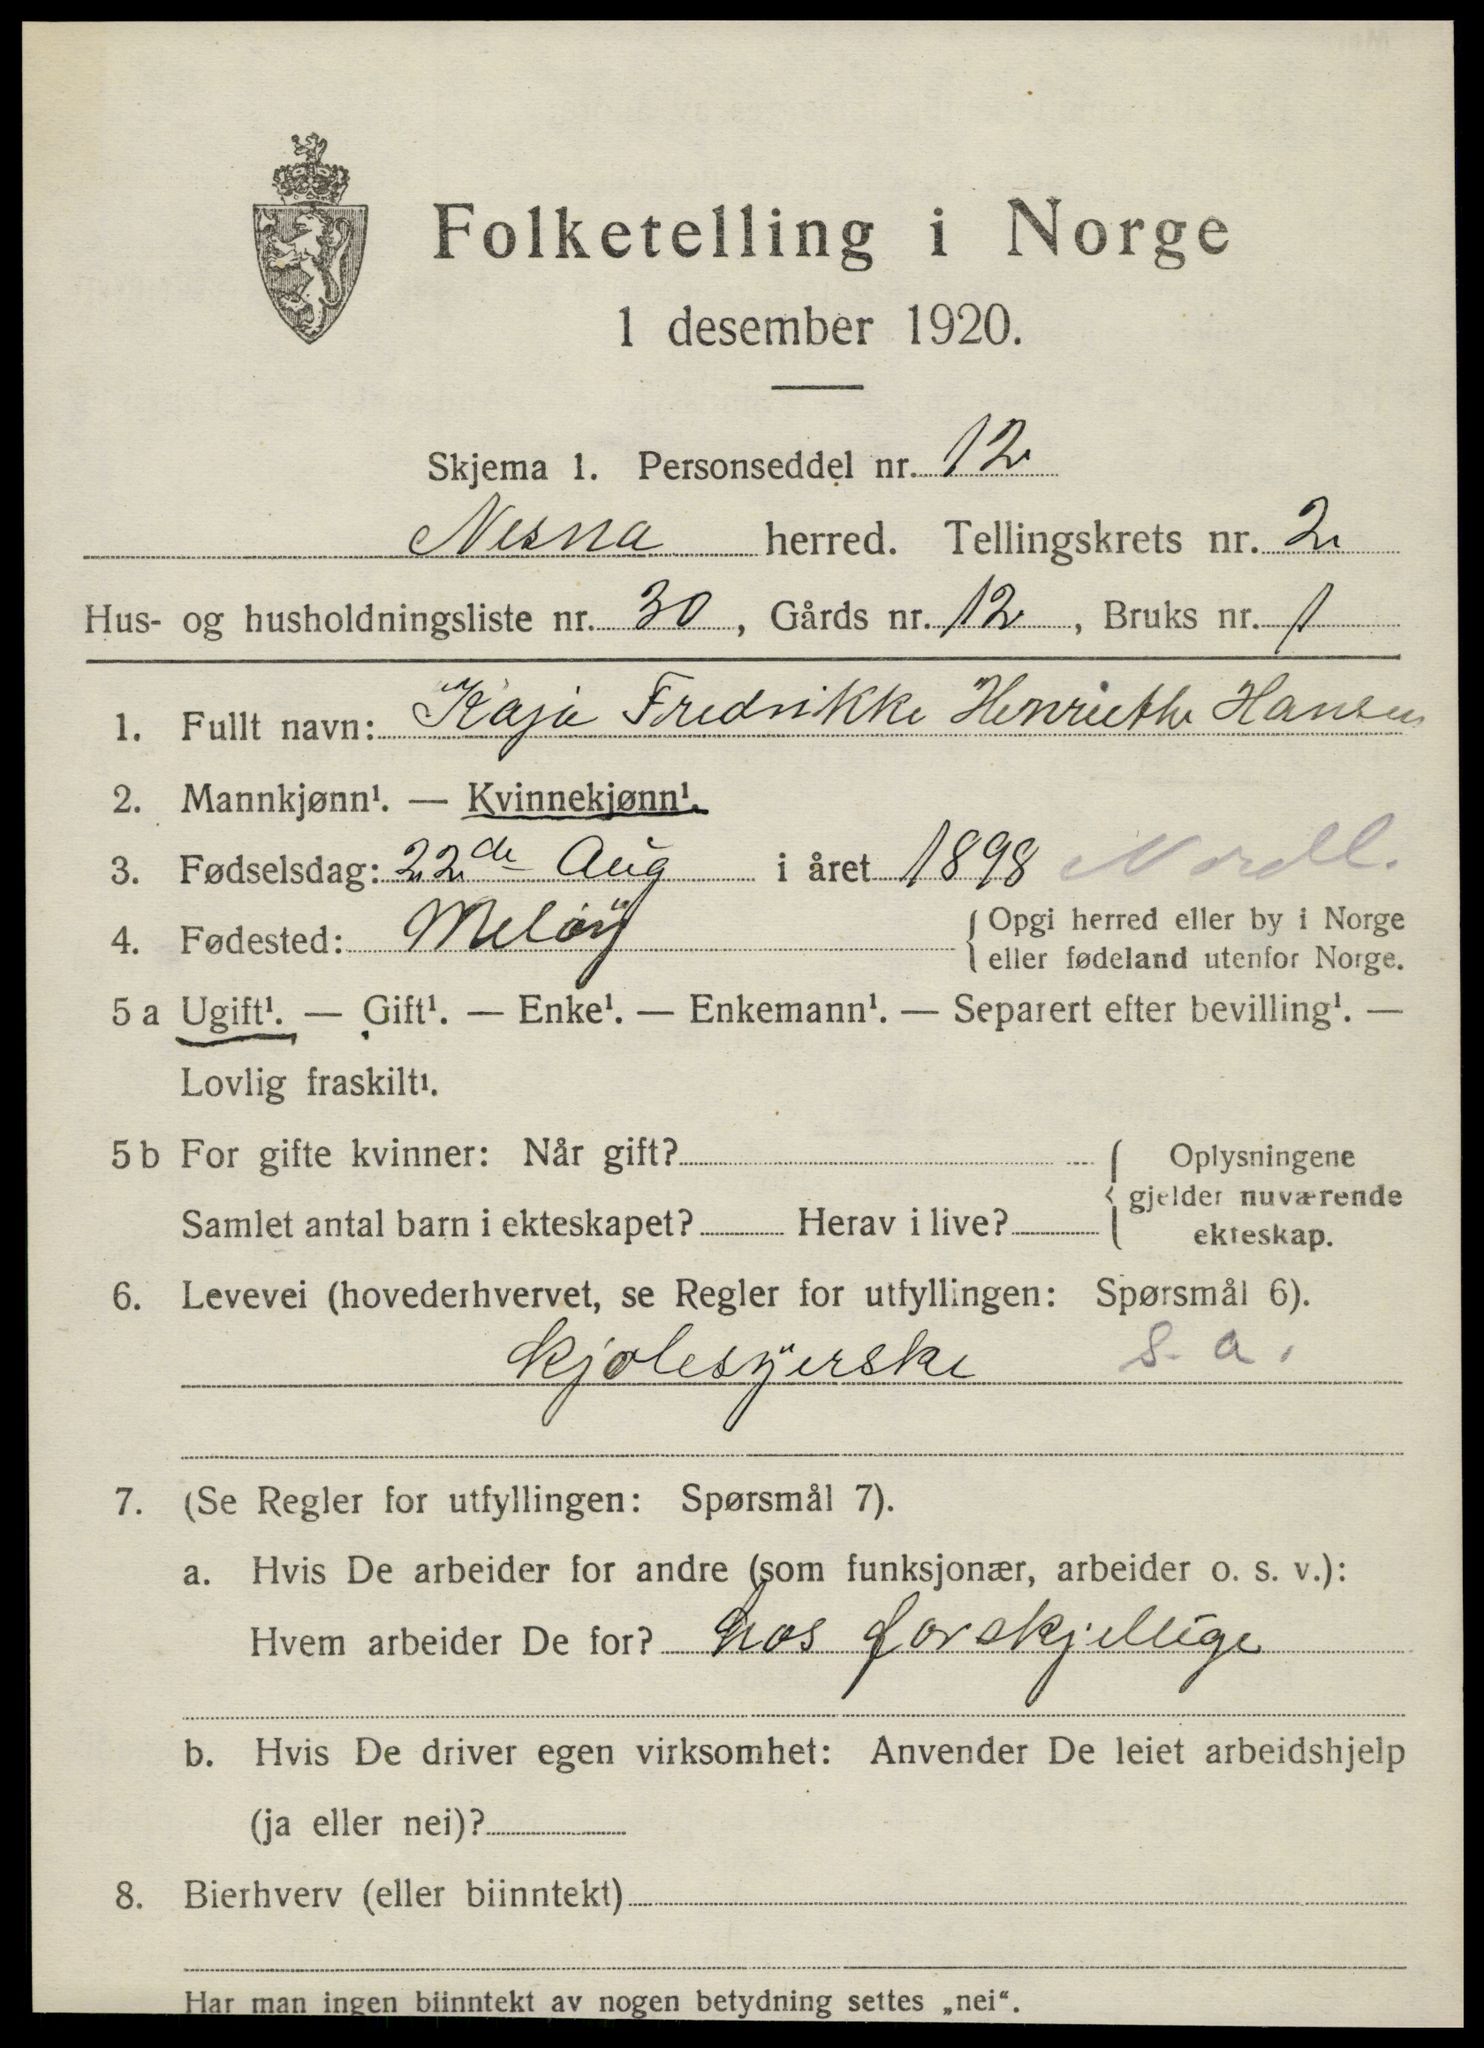 Folketelling i Norge
1 desember 1920.
Skjema 1. Personseddel nr. 12
Nesna herred. Tellingskrets nr. 2
Hus- og husholdningsliste nr. 30, Gårds nr. 12, Bruks nr. 1
1. Fullt navn: Kaja Fredrikke Henriethe Hansen
2. Mannkjønn¹. — Kvinnekjønn¹.
3. Fødselsdag: 22de Aug i året 1898 Nordl.
4. Fødested: Meløy { Opgi herred eller by i Norge
eller fødeland utenfor Norge.
5 a Ugift¹. — Gift¹. — Enke¹. — Enkemann¹. — Separert efter bevilling¹. —
Lovlig fraskilt¹.
5 b For gifte kvinner: Når gift? { Oplysningene
gjelder nuværende
Samlet antal barn i ekteskapet? Herav i live?
ekteskap.
6. Levevei (hovederhvervet, se Regler for utfyllingen: Spørsmål 6).
Kjolesyerske s. a.
7. (Se Regler for utfyllingen: Spørsmål 7).
a. Hvis De arbeider for andre (som funksjonær, arbeider o. s. v.):
Hvem arbeider De for? hos forskjellige
b. Hvis De driver egen virksomhet: Anvender De leiet arbeidshjelp
(ja eller nei)?
8. Bierhverv (eller biinntekt)
Har man ingen biinntekt av nogen betydning settes „nei“.